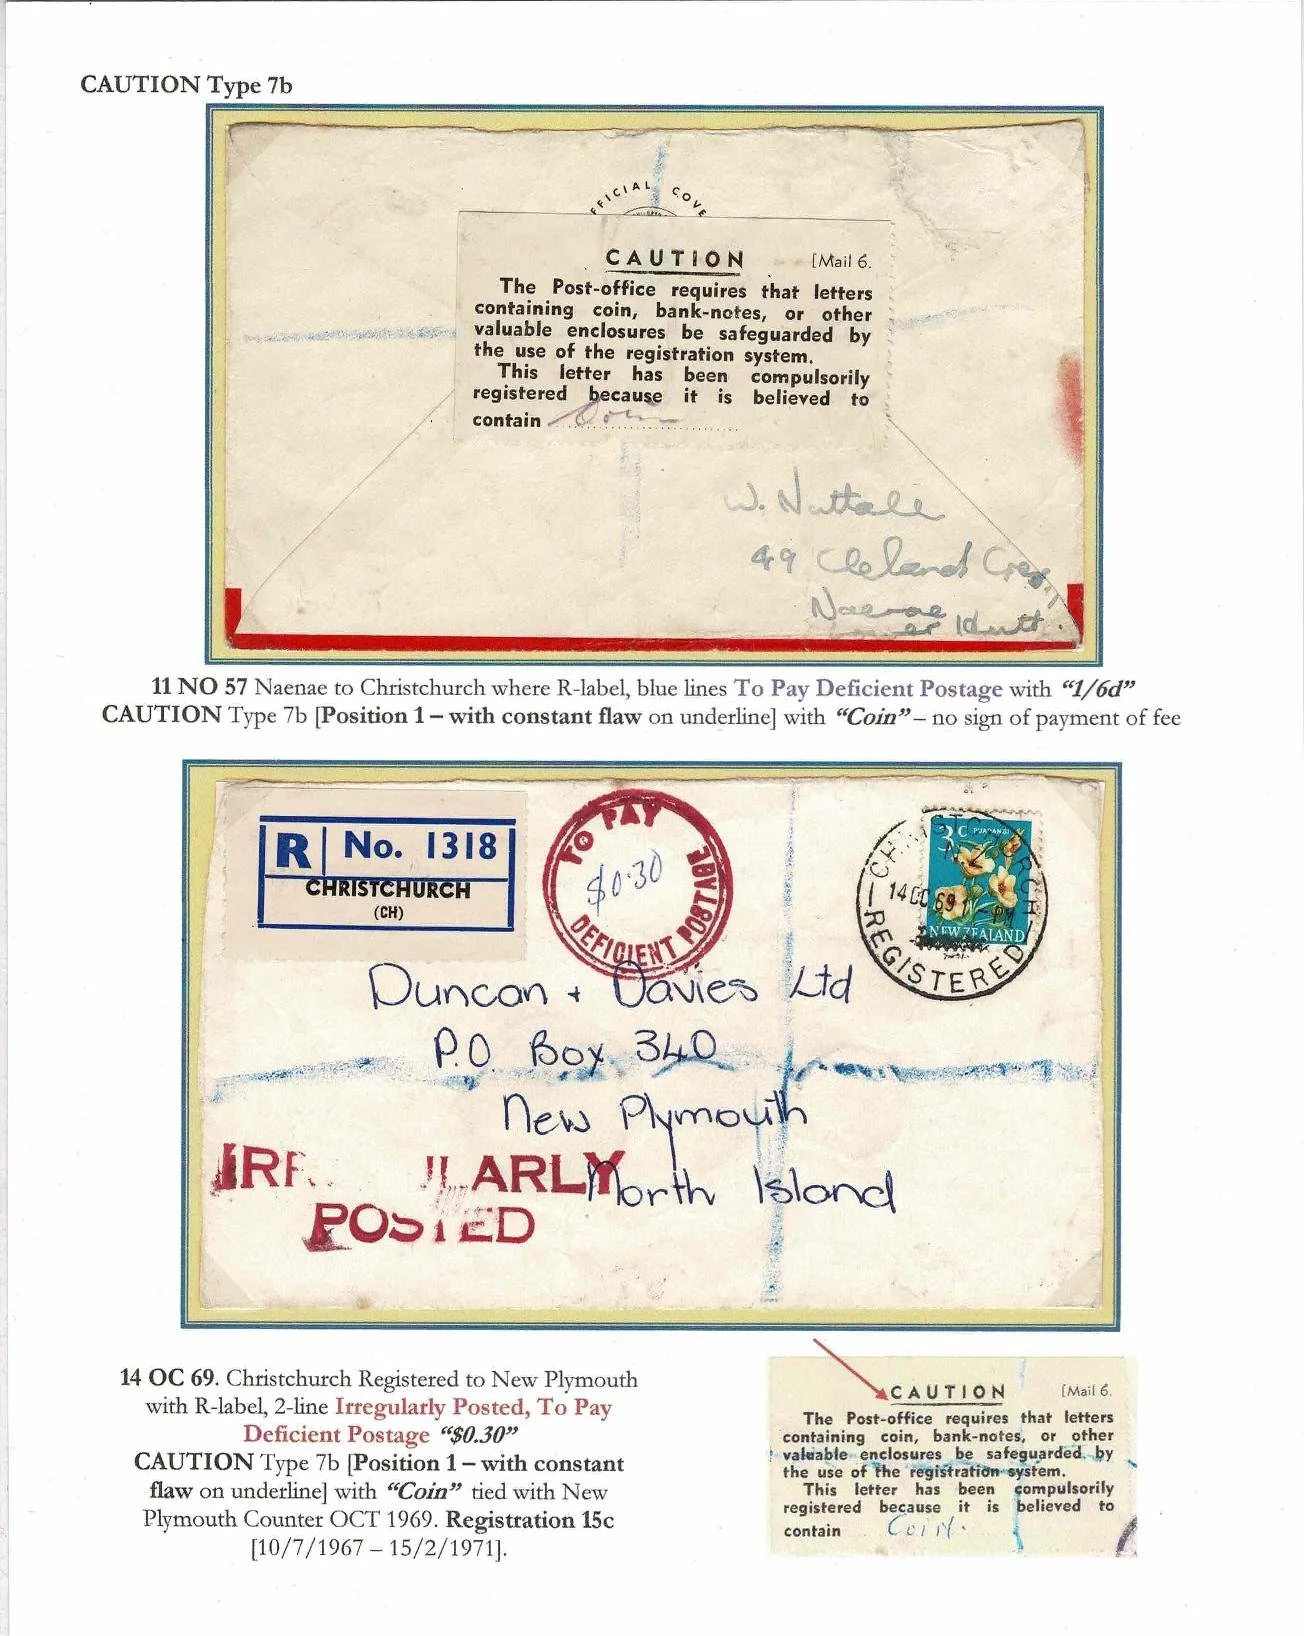 CAUTION Type 7b
FFICIAL COVE
CAUTION [Mail 6.
The Post-office requires that letters
containing coin, bank-notes, or other
valuable enclosures be safeguarded by
the use of the registration system.
This letter has been compulsorily
registered because it is believed to
contain Coin
W. Nuttall
49 Cleland Cres.
Naenae
Lower Hutt.
11 NO 57 Naenae to Christchurch where R-label, blue lines To Pay Deficient Postage with “1/6d”
CAUTION Type 7b [Position 1 – with constant flaw on underline] with “Coin” – no sign of payment of fee
R No. 1318
CHRISTCHURCH
(CH)
TO PAY
$0.30
DEFICIENT POSTAGE
3c PUARANGI
NEW ZEALAND
CHRISTCHURCH
N.Z.
14 OC 69 1 - PM
REGISTERED
Duncan + Davies Ltd
P.O. Box 340
New Plymouth
North Island
IRR ULARLY
POSTED
14 OC 69. Christchurch Registered to New Plymouth
with R-label, 2-line Irregularly Posted, To Pay
Deficient Postage “$0.30”
CAUTION Type 7b [Position 1 – with constant
flaw on underline] with “Coin” tied with New
Plymouth Counter OCT 1969. Registration 15c
[10/7/1967 – 15/2/1971].
CAUTION [Mail 6.
The Post-office requires that letters
containing coin, bank-notes, or other
valuable enclosures be safeguarded by
the use of the registration system.
This letter has been compulsorily
registered because it is believed to
contain Coin.